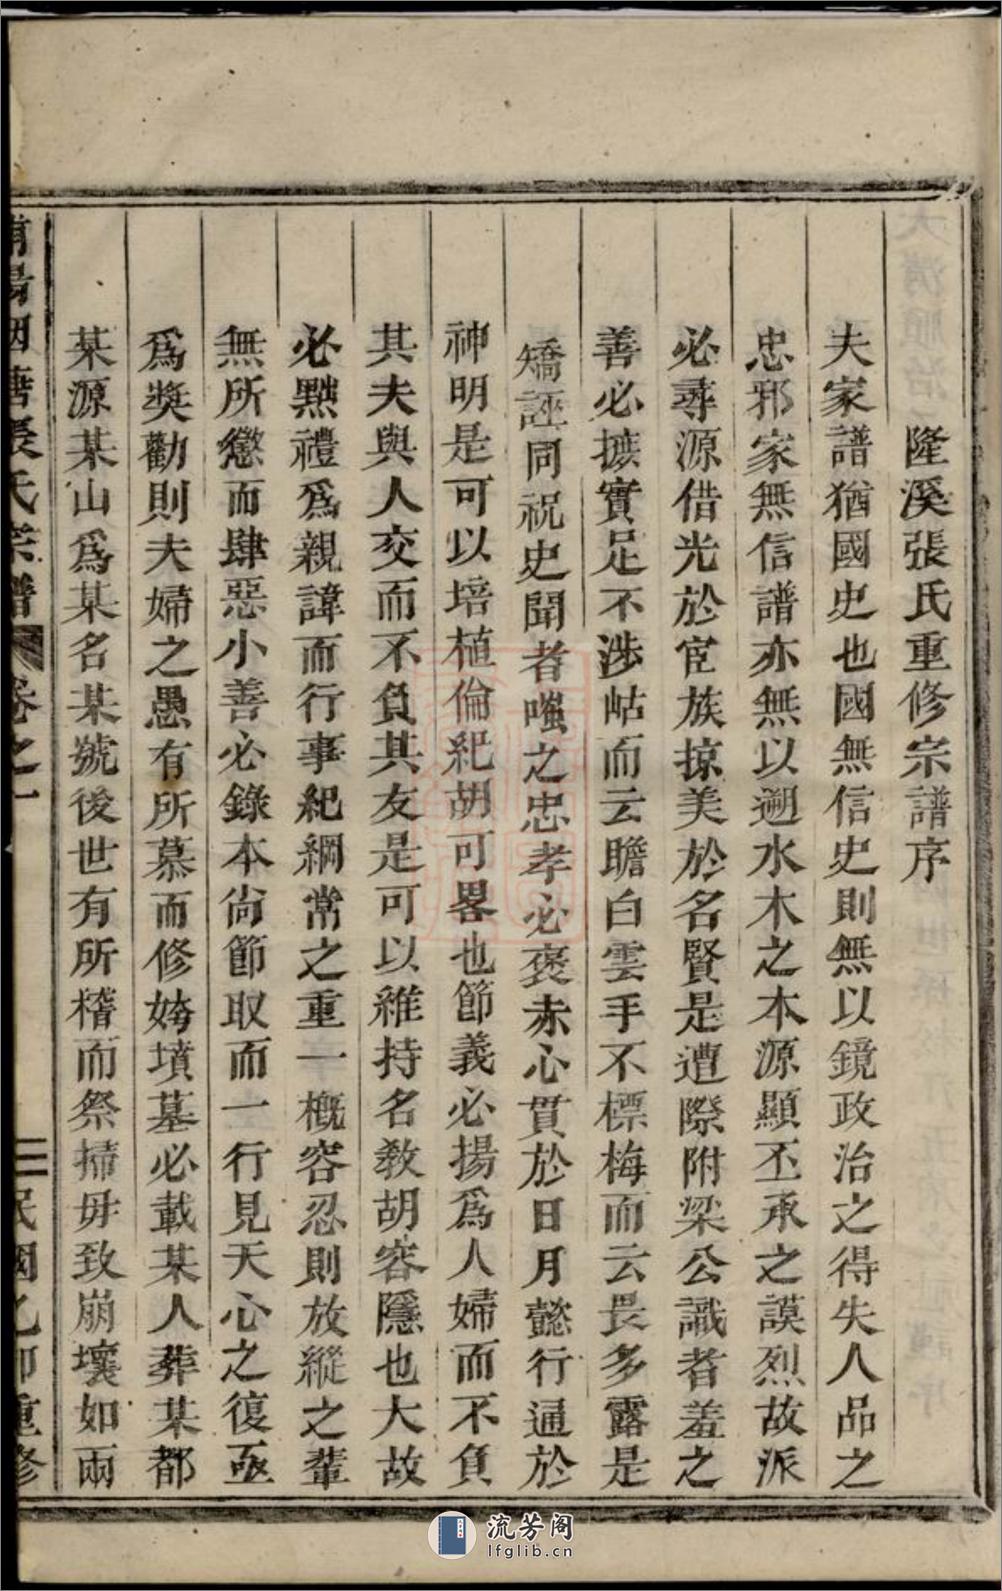 隆溪張氏重修宗譜序
夫家譜猶國史也國無信史則無以鏡政治之得失人品之
忠邪家無信譜亦無以遡水木之本源顯丕承之謨烈故派
必尋源借光於宦族掠美於名賢是遭際附梁公識者羞之
善必摭實足不涉岵而云瞻白雲手不標梅而云畏多露是
矯誣同祝史聞者嗤之忠孝必褒赤心貫於日月懿行通於
神明是可以培植倫紀胡可畧也節義必揚爲人婦而不負
其夫與人交而不負其友是可以維持名敎胡容隱也大故
必黜禮爲親諱而行事紀綱常之重一槪容忍則放縱之輩
無所懲而肆惡小善必錄本尙節取而一行見天心之復亟
爲奬勸則夫婦之愚有所慕而修姱墳墓必載某人葬某都
某源某山爲某名某號後世有所稽而祭掃毋致崩壞如兩
張氏宗譜
卷之一
二
民國乙卯重修
流芳阁
lfglib.cn